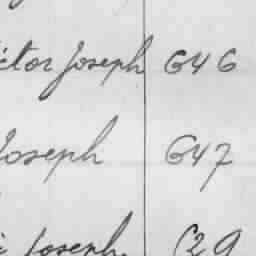 ctor Joseph 646
Joseph 647
Joseph 29